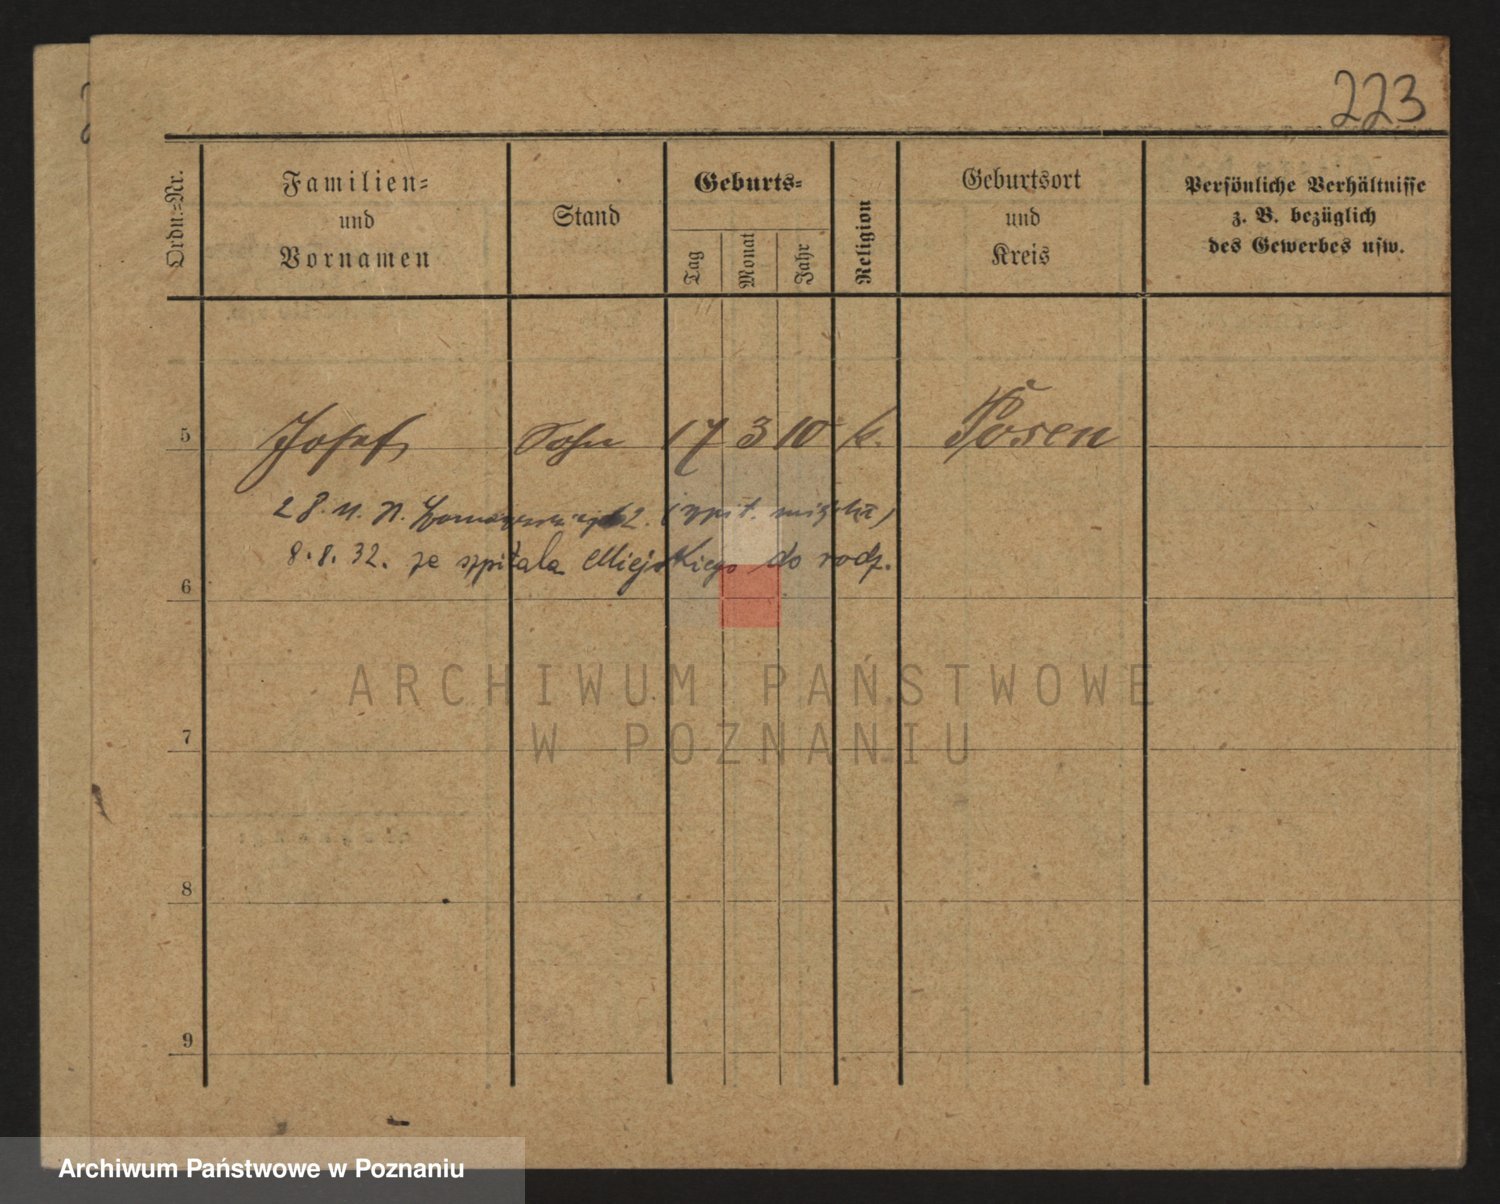 223
Ordn.=Nr.
Familien=
und
Vornamen
Stand
Geburts=
Tag
Monat
Jahr
Religion
Geburtsort
und
Kreis
Persönliche Verhältnisse
z. B. bezüglich
des Gewerbes usw.
5 Josef Sohn 17 3 10 k. Posen
28. 11. 2. (szpit. miejski)
8.8.32. ze szpitala Miejskiego do rodz.
6
7
8
9
ARCHIWUM PAŃSTWOWE
W POZNANIU
Archiwum Państwowe w Poznaniu